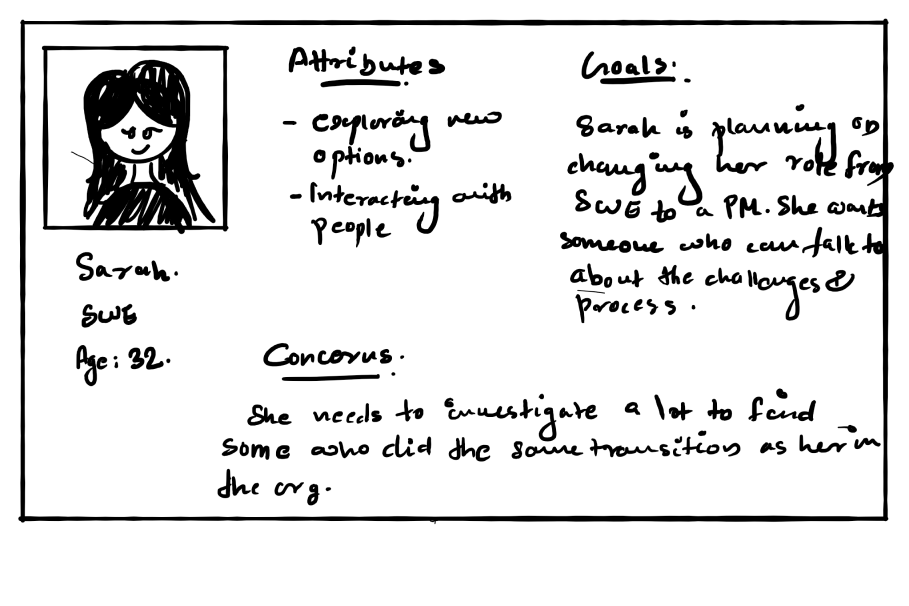 Attributes
- exploring new
options.
- Interacting with
people
Goals:
Sarah is planning on
changing her role from
SWE to a PM. She wants
someone who can talk to
about the challenges &
process.
Sarah.
SWE
Age: 32.
Concerns.
She needs to investigate a lot to find
some who did the same transition as her in
the org.